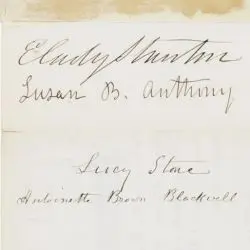 E Cady Stanton
Susan B. Anthony
Lucy Stone
Antoinette Brown Blackwell